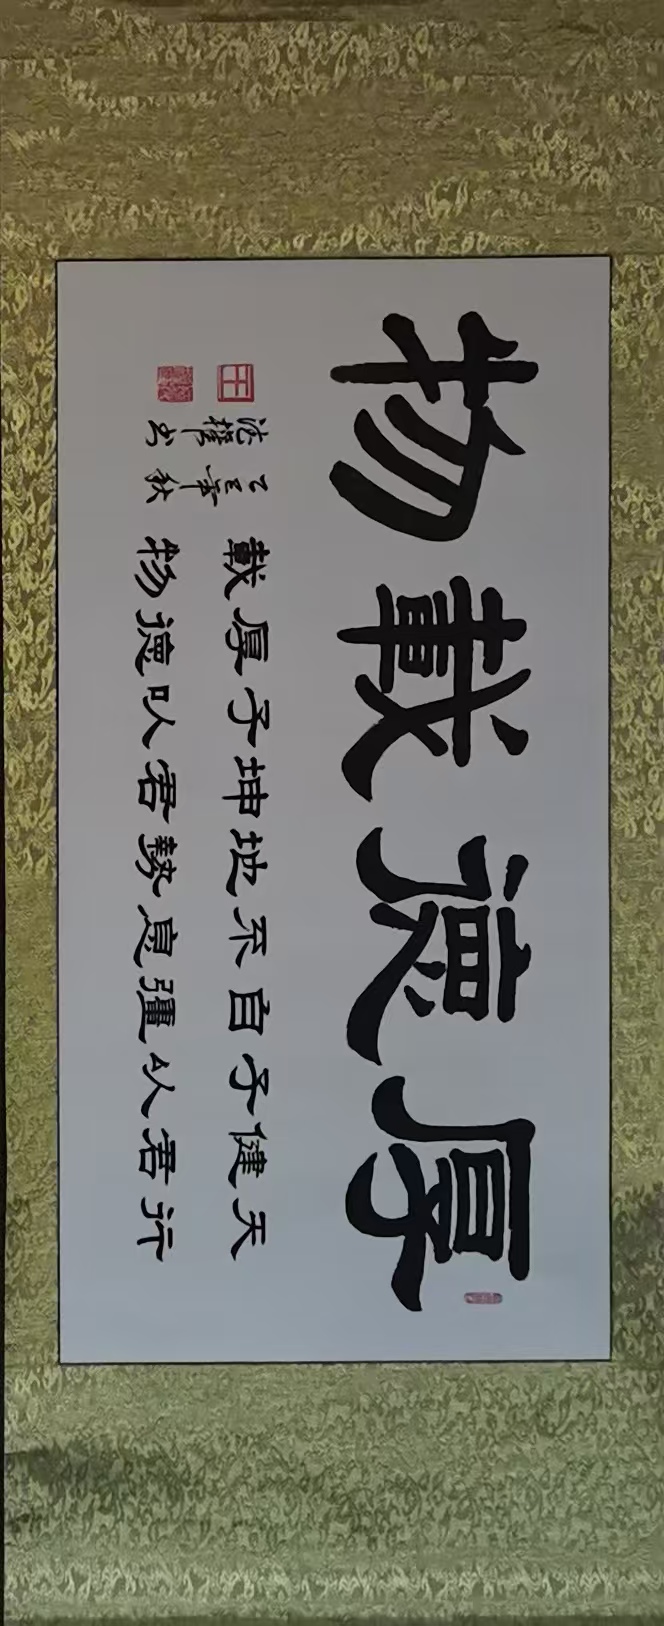 厚德載物
天行
健君
子以
自彊
不息
地勢
坤君
子以
厚德
載物
乙巳年秋
书